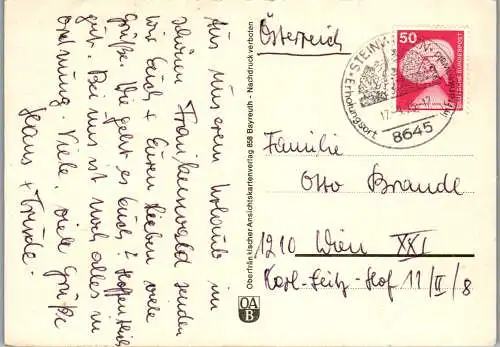 Aus unserem Urlaub im
schönen Frankenwald senden
wir Euch + Euren lieben viele
Grüße. Wie geht es Euch? Hoffentlich
gut. Bei uns ist noch alles in
Ordnung. Viele, viele Grüße
Hans + Trude.
Oberfränkischer Ansichtskartenverlag 858 Bayreuth - Nachdruck verboten
OA
B
Österreich
50
DEUTSCHE BUNDESPOST
Erholungsort
8645
Familie
Otto Brande
1210 Wien XXI
Karl-Seitz-Hof 11/II/8